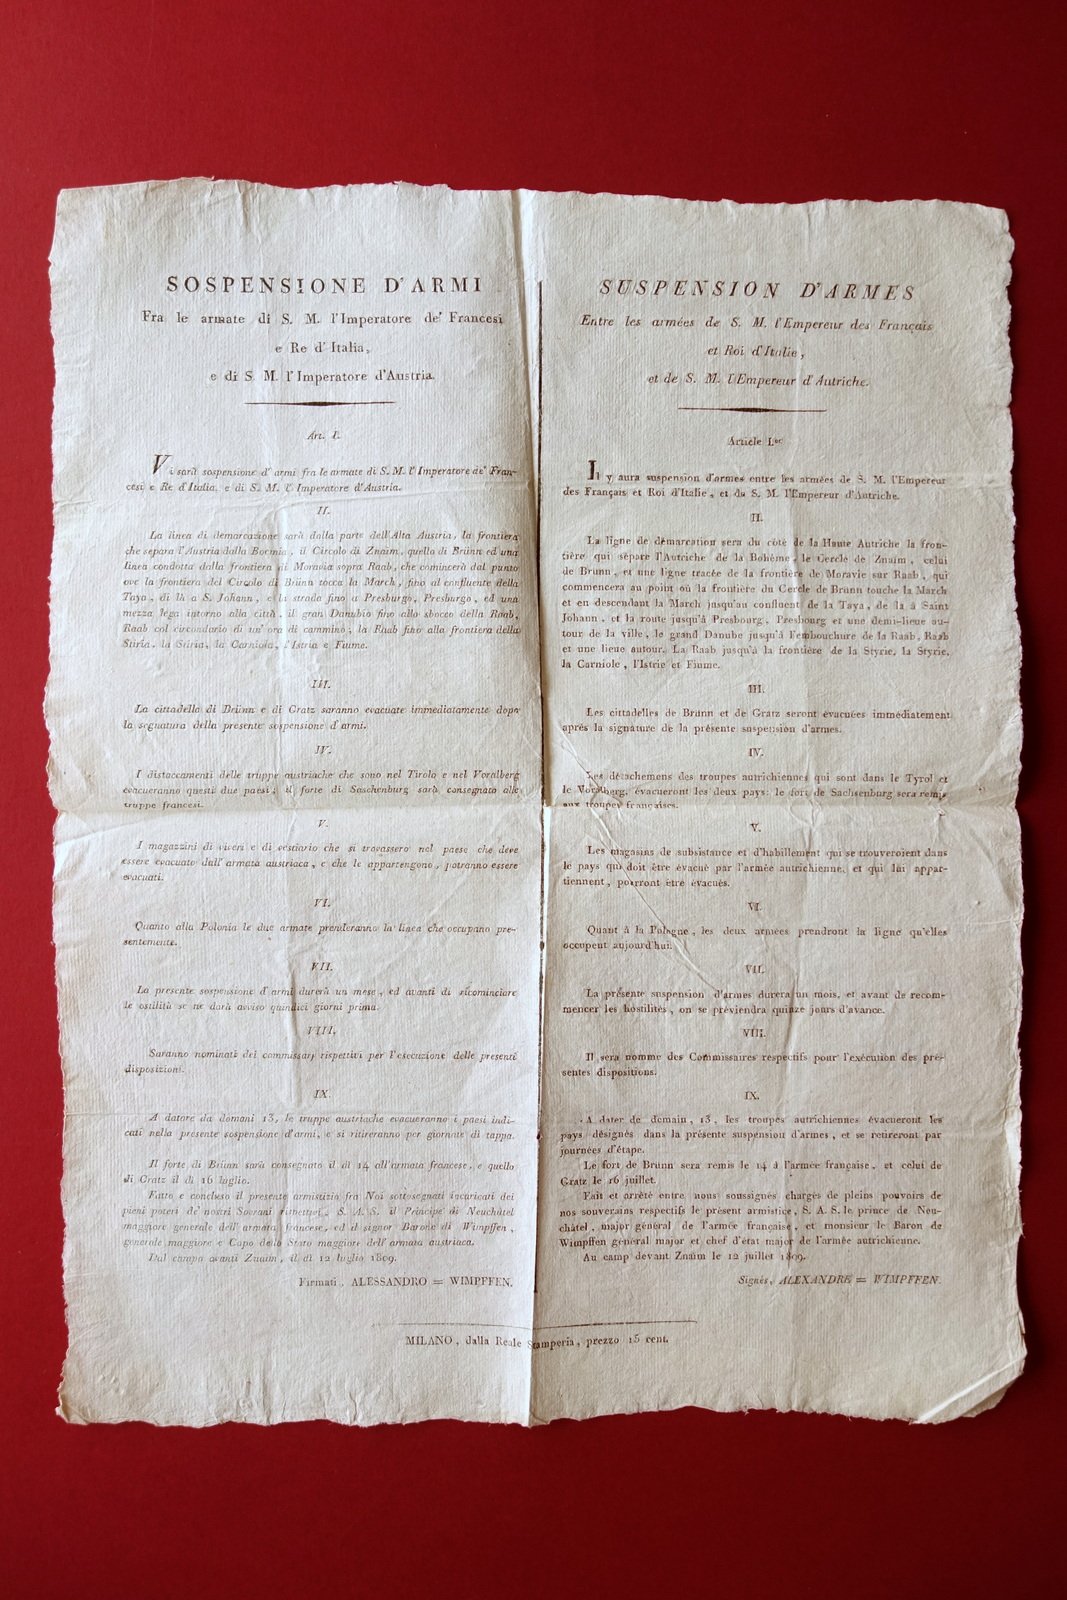 SOSPENSIONE D'ARMI
Fra le armate di S. M. l'Imperatore de' Francesi
e Re d'Italia,
e di S. M. l'Imperatore d'Austria.
Art. I.
Vi sarà sospensione d'armi fra le armate di S. M. l'Imperatore de' Fran-
cesi e Re d'Italia, e di S. M. l'Imperatore d'Austria.
II.
La linea di demarcazione sarà dalla parte dell'Alta Austria, la frontiera
che separa l'Austria dalla Boemia, il Circolo di Znaim, quello di Brünn ed una
linea condotta dalla frontiera di Moravia sopra Raab, che comincerà dal punto
ove la frontiera del Circolo di Brünn tocca la March, fino al confluente della
Taya, di là a S. Johann, e la strada fino a Presburgo, Presburgo, ed una
mezza lega intorno alla città, il gran Danubio fino allo sbocco della Raab,
Raab col circondario di un' ora di cammino, la Raab fino alla frontiera della
Stiria, la Stiria, la Carniola, l'Istria e Fiume.
III.
La cittadella di Brünn e di Gratz saranno evacuate immediatamente dopo
la segnatura della presente sospensione d'armi.
IV.
I distaccamenti delle truppe austriache che sono nel Tirolo e nel Voralberg
evacueranno questi due paesi; il forte di Saschenburg sarà consegnato alle
truppe francesi.
V.
I magazzini di viveri e di vestiario che si trovassero nel paese che deve
essere evacuato dall'armata austriaca, e che le appartengono, potranno essere
evacuati.
VI.
Quanto alla Polonia le due armate prenderanno la linea che occupano pre-
sentemente.
VII.
La presente sospensione d'armi durerà un mese, ed avanti di ricominciare
le ostilità se ne darà avviso quindici giorni prima.
VIII.
Saranno nominati dei commissarj rispettivi per l'esecuzione delle presenti
disposizioni.
IX.
A datare da domani 13, le truppe austriache evacueranno i paesi indi-
cati nella presente sospensione d'armi, e si ritireranno per giornate di tappa.
Il forte di Brünn sarà consegnato il dì 14 all'armata francese, e quello
di Gratz il dì 16 luglio.
Fatto e concluso il presente armistizio fra Noi sottosegnati incaricati dei
pieni poteri de' nostri Sovrani rispettivi, S. A. S. il Principe di Neuchâtel
maggiore generale dell'armata francese, ed il signor Barone di Wimpffen,
generale maggiore e Capo dello Stato maggiore dell'armata austriaca.
Dal campo avanti Znaim, il dì 12 luglio 1809.
Firmati, ALESSANDRO = WIMPFFEN.
SUSPENSION D'ARMES
Entre les armées de S. M. l'Empereur des Français
et Roi d'Italie,
et de S. M. l'Empereur d'Autriche.
Article I.er
Il y aura suspension d'armes entre les armées de S. M. l'Empereur
des Français et Roi d'Italie, et de S. M. l'Empereur d'Autriche.
II.
La ligne de démarcation sera du côté de la Haute Autriche la fron-
tière qui sépare l'Autriche de la Bohème, le Cercle de Znaim, celui
de Brunn, et une ligne tracée de la frontière de Moravie sur Raab, qui
commencera au point où la frontière du Cercle de Brunn touche la March
et en descendant la March jusqu'au confluent de la Taya, de là à Saint
Johann, et la route jusqu'à Presbourg, Presbourg et une demi-lieue au-
tour de la ville, le grand Danube jusqu'à l'embouchure de la Raab, Raab
et une lieue autour. La Raab jusqu'à la frontière de la Styrie, la Styrie,
la Carniole, l'Istrie et Fiume.
III.
Les cittadelles de Brünn et de Gratz seront évacuées immédiatement
après la signature de la présente suspension d'armes.
IV.
Les détachemens des troupes autrichiennes qui sont dans le Tyrol et
le Voralberg, évacueront les deux pays; le fort de Sachsenburg sera remis
aux troupes françaises.
V.
Les magasins de subsistance et d'habillement qui se trouveroient dans
le pays qui doit être évacué par l'armée autrichienne, et qui lui appar-
tiennent, pourront être évacués.
VI.
Quant à la Pologne, les deux armées prendront la ligne qu'elles
occupent aujourd'hui.
VII.
La présente suspension d'armes durera un mois, et avant de recom-
mencer les hostilités, on se préviendra quinze jours d'avance.
VIII.
Il sera nomme des Commissaires respectifs pour l'exécution des pré-
sentes dispositions.
IX.
A dater de demain, 13, les troupes autrichiennes évacueront les
pays désignés dans la présente suspension d'armes, et se retireront par
journées d'étape.
Le fort de Brünn sera remis le 14 à l'armée française, et celui de
Gratz le 16 juillet.
Fait et arrêté entre nous soussignés chargés de pleins pouvoirs de
nos souverains respectifs le présent armistice, S. A. S. le prince de Neu-
châtel, major général de l'armée française, et monsieur le Baron de
Wimpffen général major et chef d'état major de l'armée autrichienne.
Au camp devant Znaïm le 12 juillet 1809.
Signés, ALEXANDRE = WIMPFFEN.
MILANO, dalla Reale Stamperia, prezzo 15 cent.